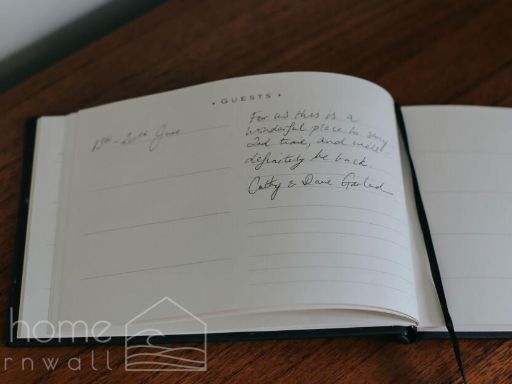 • GUESTS •
13th - 20th June
For us this is a
wonderful place to stay -
2nd time, and will
definitely be back.
Cathy & Dave
home
rnwall